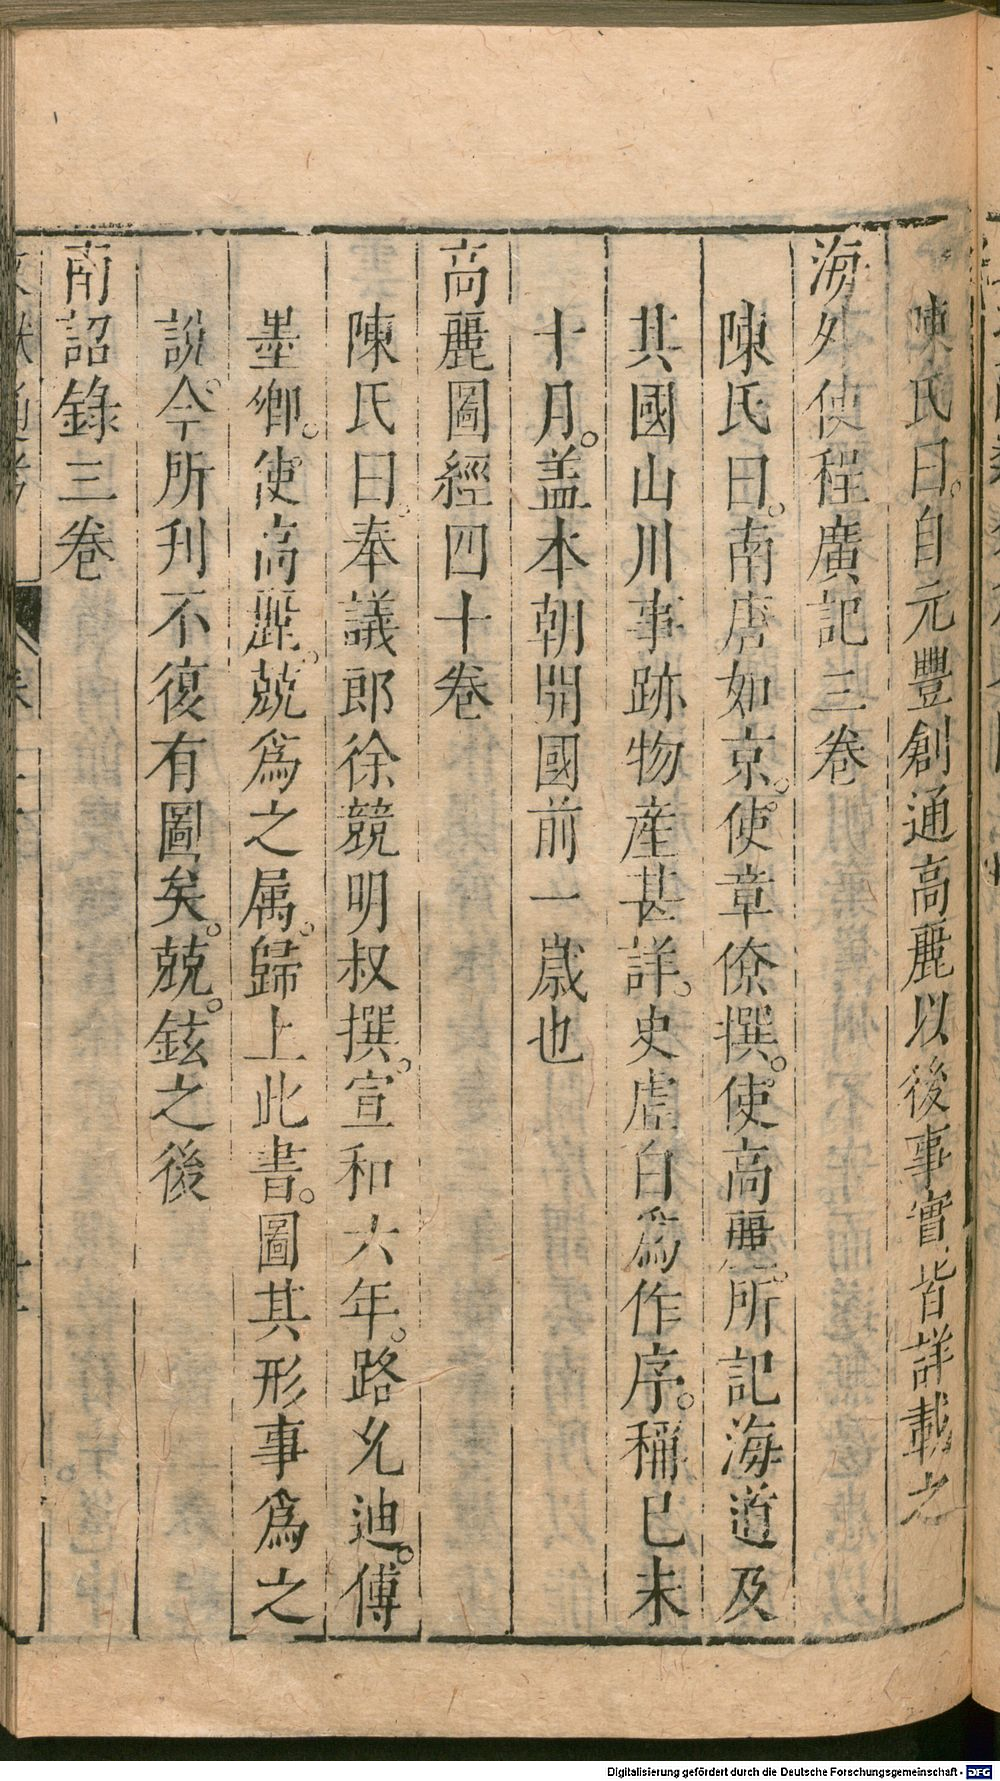 陳氏曰。自元豐創通高麗以後事實皆詳載之
海外使程廣記三卷
陳氏曰。南唐如京。使章僚撰。使高麗。所記海道及
其國山川。事跡物産甚詳。史虛白爲作序。稱己未
十月。盖本朝開國前一歲也
高麗圖經四十卷
陳氏曰。奉議郎徐兢明叔撰。宣和六年。路允迪。傅
墨卿。使高麗。兢爲之属。歸上此書。圖其形事爲之
說。今所刋不復有圖矣。兢。鉉之後
南詔錄三卷
Digitalisierung gefördert durch die Deutsche Forschungsgemeinschaft - DFG